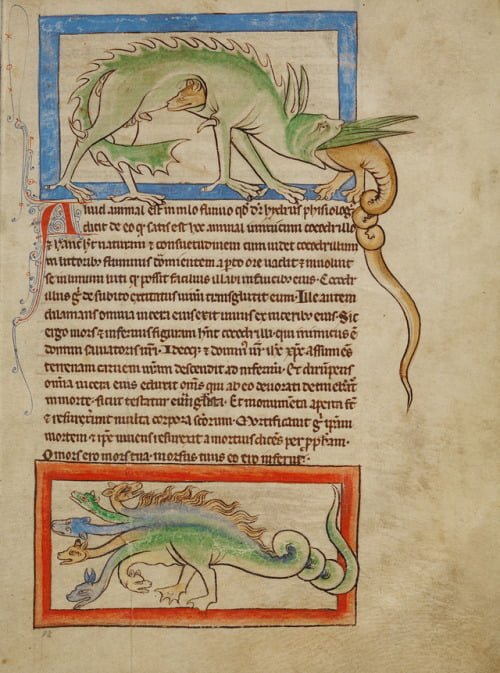 Aliud animal est in nilo fluuio qd dr hydrus phisiolog
dicit de eo qd satis est hoc animal inimicum cocodrillo
& hanc ht naturam & consuetudinem cum uidet cocodrillum
in littoribus fluminis dormientem aperto ore uadit & inuoluit
se in limum luti quo possit facilius illabi in faucibus eius. Cocod
rillus g de subito excitatus uiuum transglutit eum. Ille autem
dilanians omnia uiscera eius exit uiuus ex uisceribus eius. Sic
ergo mors & infernus figuram hnt cocodrilli. qui inimicus est
domini saluatoris nri. Ideoq & dominus nr ihc xpc assumens
terrenam carnem descendit ad infernum. Et dirumpens
omnia uiscera eius eduxit oms qui ab eo deuorati detinebant
in morte. sicut testatur euuangelista. Et monumenta aperta st
& resurrexerunt multa corpora scorum. Mortificauit g ipsam
mortem & ipse uiuens resurrexit a mortuis dicens per pphetam.
O mors ero mors tua. morsus tuus ero inferne.